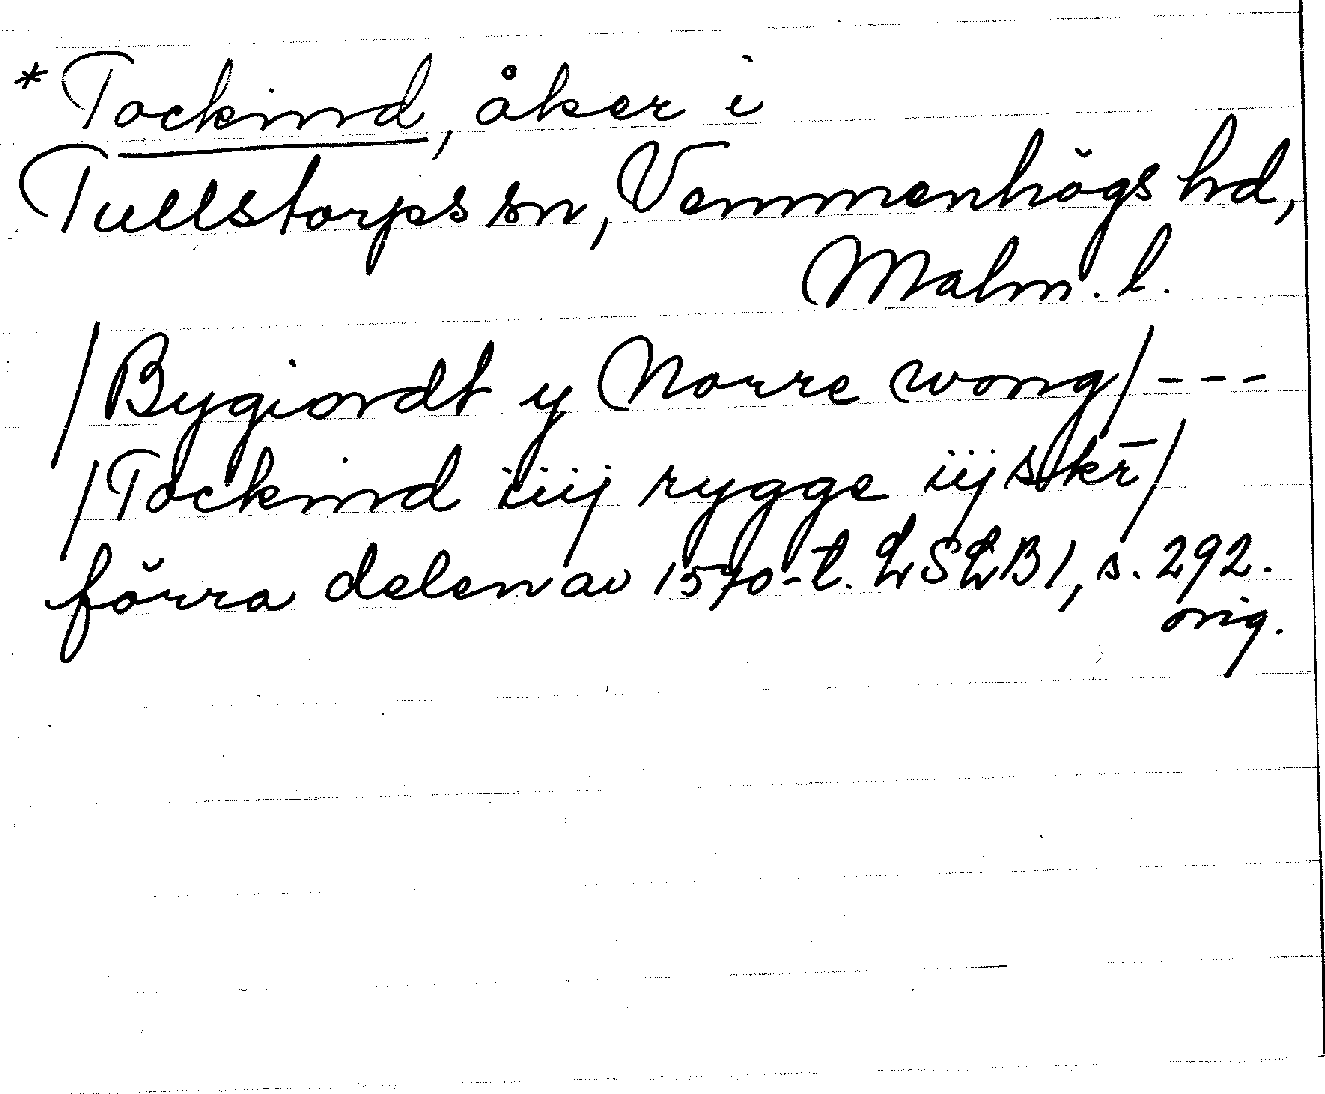 *Tockind, åker i
Tullstorps sn, Vemmenhögs hd,
Malm. l.
/Bygiordt y Norre wong/ ---
/Tockind iiij rygge iij skr̄/
förra delen av 1570-t. LSLB1, s. 292.
orig.